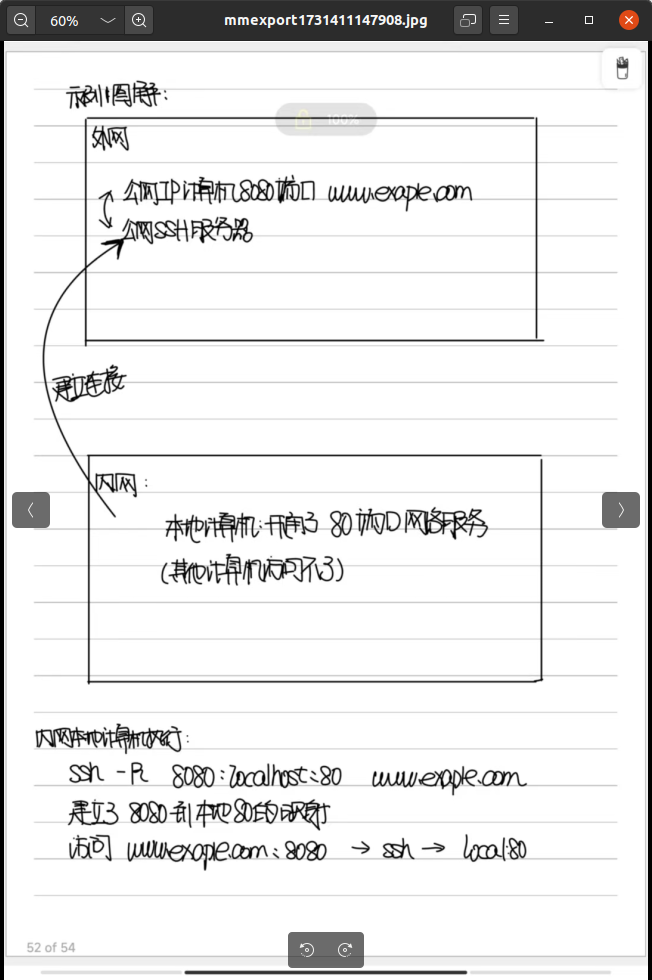 60%
mmexport1731411147908.jpg
示例图解:
100%
外网
公网IP计算机8080端口 www.exaple.com
公网SSH服务器
建立连接
内网:
本地计算机:开启了 80端口网络服务
(其他计算机访问不了)
内网本地计算机执行:
ssh -R 8080:localhost:80 www.exaple.com
建立了8080到本地80的映射
访问 www.exaple.com:8080 → ssh → local:80
52 of 54